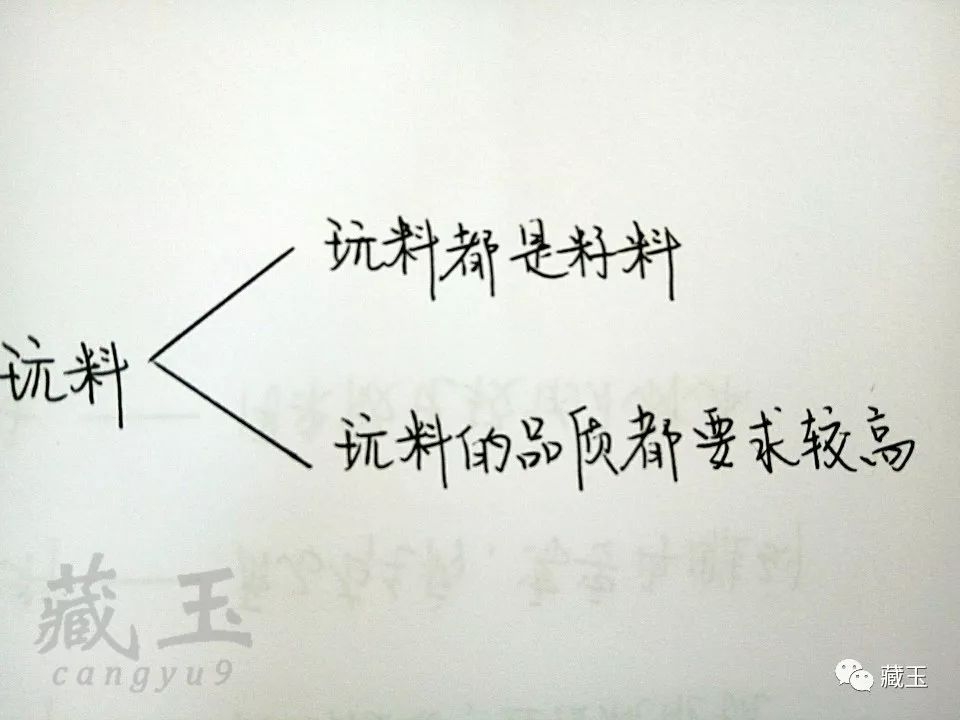 玩料都是籽料
玩料
玩料的品质都要求较高
藏玉
cangyu9
藏玉